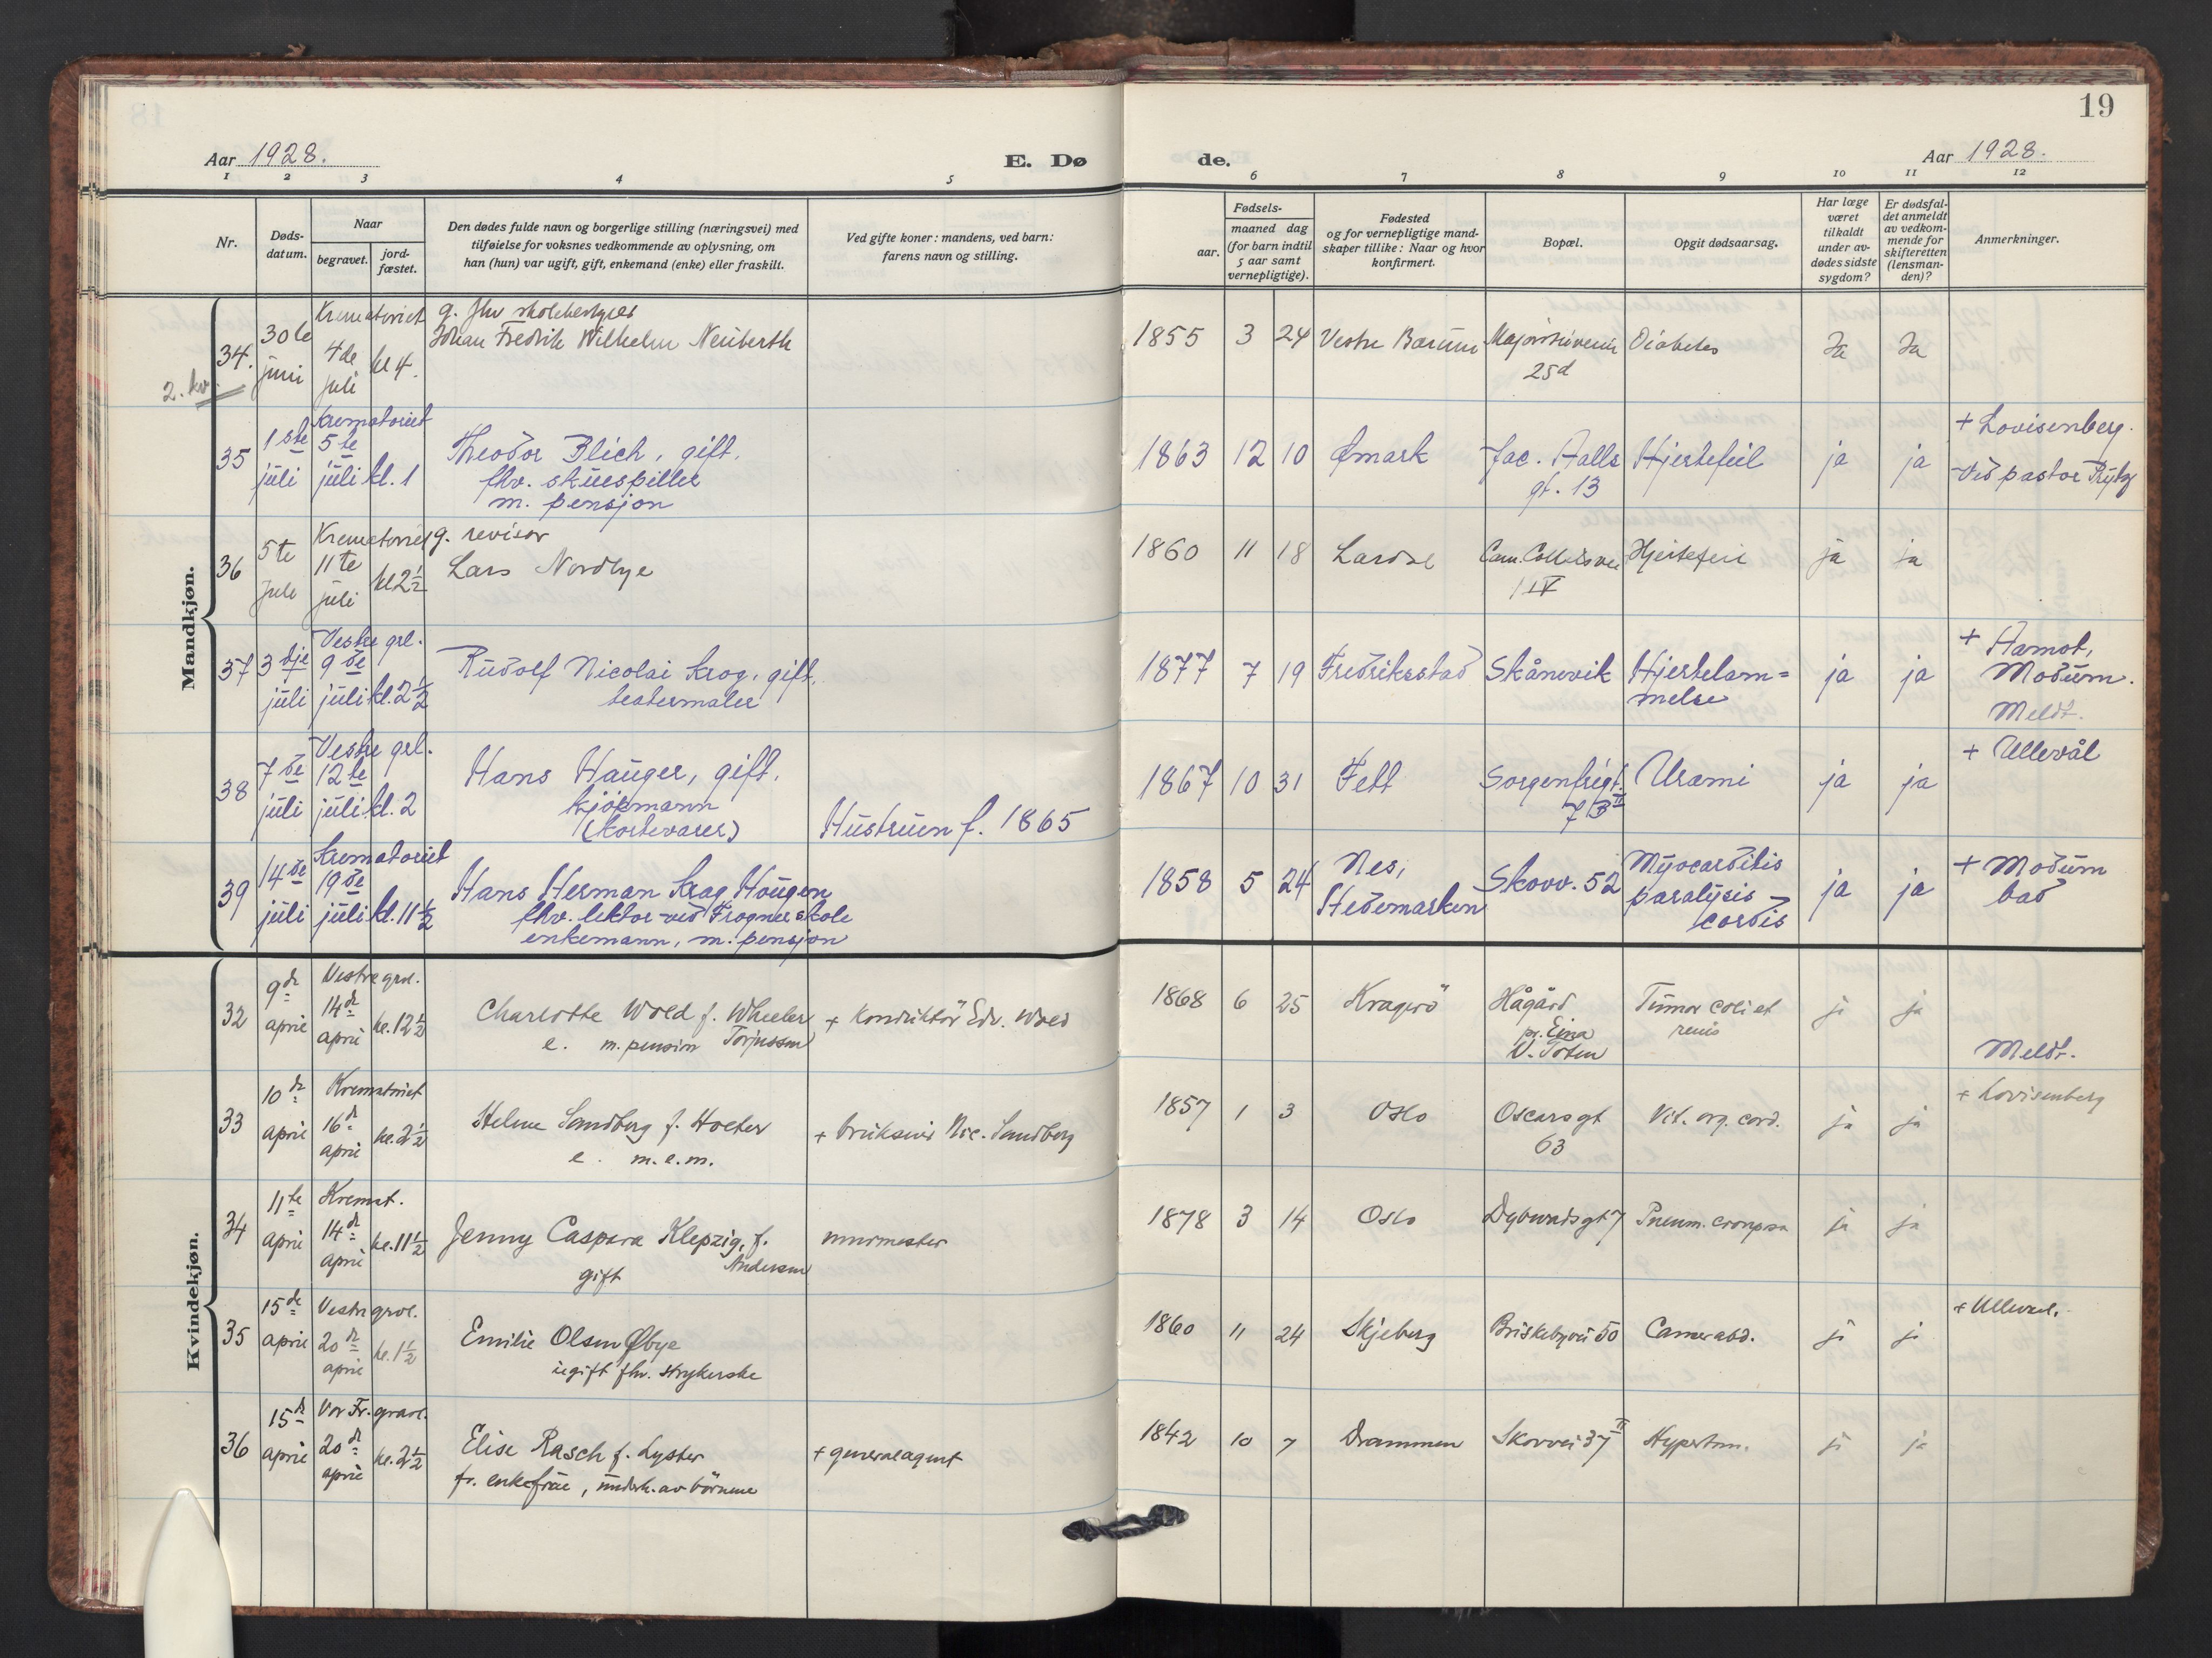 19
Aar 1928.
E. Dø
de.
Aar 1928.
1 2 3 4 5 6 7 8 9 10 11 12
Nr.
Døds-
datum.
Naar
begravet.
jord-
fæstet.
Den dødes fulde navn og borgerlige stilling (næringsvei) med
tilføielse for voksnes vedkommende av oplysning, om
han (hun) var ugift, gift, enkemand (enke) eller fraskilt.
Ved gifte koner: mandens, ved barn:
farens navn og stilling.
Fødsels-
aar.
maaned dag
(for barn indtil
5 aar samt
vernepligtige).
Fødested
og for vernepligtige mand-
skaper tillike: Naar og hvor
konfirmert.
Bopæl.
Opgit dødsaarsag.
Har læge
været
tilkaldt
under av-
dødes sidste
sygdom?
Er dødsfal-
det anmeldt
av vedkom-
mende for
skifteretten
(lensman-
den)?
Anmerkninger.
Mandkjøn.
2. kv.
34. 30te juni
Krematoriet 4de juli kl 4.
g. fhv skolebestyrer
Johan Fredrik Wilhelm Neuberth
1855 3 24 Vestre Bærum
25d
Diabetes Ja Ja
35 1ste juli
Krematoriet 5te juli kl. 1
Theodor Blich, gift.
fhv. skuespiller
m. pensjon
1863 12 10 Ømark
Jac. Aalls
gt. 13
Hjertefeil ja ja
+ Lovisenberg.
Ved pastor
36 5te juli
Krematoriet 11te juli kl 2½
g. revisor
Lars Nordbye
1860 11 18 Lardal
Cam. Collettsvei
1 IV
Hjertefeil ja ja
37 3dje juli
Vestre grl. 9de juli kl. 2½
Rudolf Nicolai Krog, gift.
teatermaler
1877 7 19 Fredriksstad Skånevik
Hjertelam=
melse
ja ja
+ Åmot,
Modum.
Meldt.
38 7de juli
Vestre grl. 12te juli kl. 2
Hans Hauger, gift.
kjöpmann
(kortevarer)
Hustruen f. 1865
1867 10 31 Fett
Sorgenfrigt.
Uræmi ja ja
+ Ullevål
39 14de juli
Krematoriet 19de juli kl. 11½
Hans Herman Krag Hougen
fhv. lektor ved Frogner skole
enkemann, m. pensjon
1858 5 24
Nes,
Hedemarken
Skovv. 52
Myocarditis
paralysis
cordis
ja ja
+ Modum
bad
Kvindekjøn.
32 9de april
Vestre grav. 14de april kl. 12½
Charlotte Wold f. Wheeler
e. m. pension Torjussen
+ konduktör Edv. Wold
1868 6 25 Kragerö
Hågård
pr. Eina
V. Toten
Tumor coli et
renis
ja ja
Meldt.
33 10de april
Krematoriet 16de april kl. 2½
Helene Sandberg f. Holter
e. m.e.m.
+ brukseier Nic. Sandberg
1857 1 3 Oslo
Oscarsgt
63
Vit. org. cord. ja ja
+ Lovisenberg
34 11te april
Kremat. 14de april kl. 11½
Jenny Caspara Klepzig, f.
Andersen
gift
murmester
1878 3 14 Oslo Dybwadsgt 7 Pneum. crouposa ja ja
35 15de april
Vestre grav. 20de april kl. 1½
Emilie Olsen Øbye
ugift fhv. strykerske
1860 11 24 Skjeberg Briskebyvei 50 Cancer abd. ja ja
+ Ullevael.
36 15de april
Vor Fr. gravl. 20de april kl. 2½
Elise Rasch f. Lyster
fr. enkefrue, underh. av börnene
+ generalagent
1842 10 7 Drammen Skovvei 37 II Hyperton. ja ja